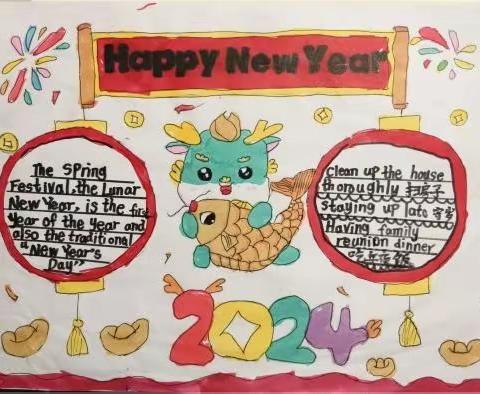 Happy New Year
The Spring
Festival, the Lunar
New Year, is the first
Year of the year and
also the traditional
"New Year's
Day"
clean up the house
thoroughly 扫房子
Staying up late 守岁
Having family
reunion dinner
吃年夜饭
2024